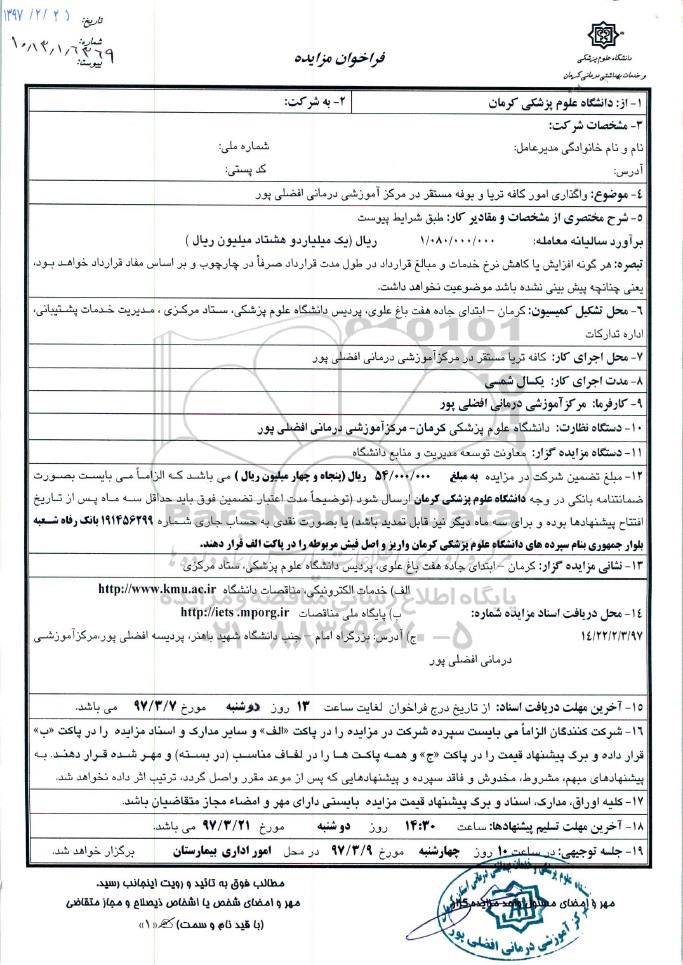 تاریخ: ۱۳۹۷/۲/۲۵
شماره: ۱۰/۱۳/۱/۶۳۶۹
پیوست:
دانشگاه علوم پزشکی
و خدمات بهداشتی درمانی کرمان
فراخوان مزایده
۱- از: دانشگاه علوم پزشکی کرمان ۲- به شرکت:
۳- مشخصات شرکت:
نام و نام خانوادگی مدیرعامل: شماره ملی:
آدرس: کد پستی:
۴- موضوع: واگذاری امور کافه تریا و بوفه مستقر در مرکز آموزشی درمانی افضلی پور
۵- شرح مختصری از مشخصات و مقادیر کار: طبق شرایط پیوست
برآورد سالیانه معامله: ۱/۰۸۰/۰۰۰/۰۰۰ ریال (یک میلیاردو هشتاد میلیون ریال )
تبصره: هر گونه افزایش یا کاهش نرخ خدمات و مبالغ قرارداد در طول مدت قرارداد صرفاً در چارچوب و بر اساس مفاد قرارداد خواهد بود،
یعنی چنانچه پیش بینی نشده باشد موضوعیت نخواهد داشت.
۶- محل تشکیل کمیسیون: کرمان – ابتدای جاده هفت باغ علوی، پردیس دانشگاه علوم پزشکی، ستاد مرکزی ، مدیریت خدمات پشتیبانی،
اداره تدارکات
۷- محل اجرای کار: کافه تریا مستقر در مرکزآموزشی درمانی افضلی پور
۸- مدت اجرای کار: یکسال شمسی
۹- کارفرما: مرکزآموزشی درمانی افضلی پور
۱۰- دستگاه نظارت: دانشگاه علوم پزشکی کرمان- مرکزآموزشی درمانی افضلی پور
۱۱- دستگاه مزایده گزار: معاونت توسعه مدیریت و منابع دانشگاه
۱۲- مبلغ تضمین شرکت در مزایده به مبلغ ۵۴/۰۰۰/۰۰۰ ریال (پنجاه و چهار میلیون ریال ) می باشد که الزاماً می بایست بصورت
ضمانتنامه بانکی در وجه دانشگاه علوم پزشکی کرمان ارسال شود (توضیحاً مدت اعتبار تضمین فوق باید حداقل سه ماه پس از تاریخ
افتتاح پیشنهادها بوده و برای سه ماه دیگر نیز قابل تمدید باشد) یا بصورت نقدی به حساب جاری شماره ۱۹۱۴۵۶۲۹۹ بانک رفاه شعبه
بلوار جمهوری بنام سپرده های دانشگاه علوم پزشکی کرمان واریز و اصل فیش مربوطه را در پاکت الف قرار دهند.
۱۳- نشانی مزایده گزار: کرمان – ابتدای جاده هفت باغ علوی، پردیس دانشگاه علوم پزشکی، ستاد مرکزی
الف) خدمات الکترونیکی، مناقصات دانشگاه http://www.kmu.ac.ir
۱۴- محل دریافت اسناد مزایده شماره: ب) پایگاه ملی مناقصات http://iets .mporg.ir
۱۴/۲۲/۲/۳/۹۷ ج) آدرس: بزرگراه امام – جنب دانشگاه شهید باهنر، پردیسه افضلی پور،مرکزآموزشی
درمانی افضلی پور
۱۵- آخرین مهلت دریافت اسناد: از تاریخ درج فراخوان لغایت ساعت ۱۳ روز دوشنبه مورخ ۹۷/۳/۷ می باشد.
۱۶- شرکت کنندگان الزاماً می بایست سپرده شرکت در مزایده را در پاکت «الف» و سایر مدارک و اسناد مزایده را در پاکت «ب»
قرار داده و برگ پیشنهاد قیمت را در پاکت «ج» و همه پاکت ها را در لفاف مناسب (در بسته) و مهر شده قرار دهند. به
پیشنهادهای مبهم، مشروط، مخدوش و فاقد سپرده و پیشنهادهایی که پس از موعد مقرر واصل گردد، ترتیب اثر داده نخواهد شد.
۱۷- کلیه اوراق، مدارک، اسناد و برگ پیشنهاد قیمت مزایده بایستی دارای مهر و امضاء مجاز متقاضیان باشد.
۱۸- آخرین مهلت تسلیم پیشنهادها: ساعت ۱۴:۳۰ روز دوشنبه مورخ ۹۷/۳/۲۱ می باشد.
۱۹- جلسه توجیهی: در ساعت ۱۰ روز چهارشنبه مورخ ۹۷/۳/۹ در محل امور اداری بیمارستان برگزار خواهد شد.
مطالب فوق به تائید و رویت اینجانب رسید.
مهر و امضای مسئول واحد مزایده گزار مهر و امضای شخص یا اشخاص ذیصلاح و مجاز متقاضی
(با قید نام و سمت) «۱»
مرکز آموزشی درمانی افضلی پور
ParsNamadData
پایگاه اطلاع رسانی مناقصه و مزایده
۰۲۱-۸۸۳۴۹۶۷۰-۵